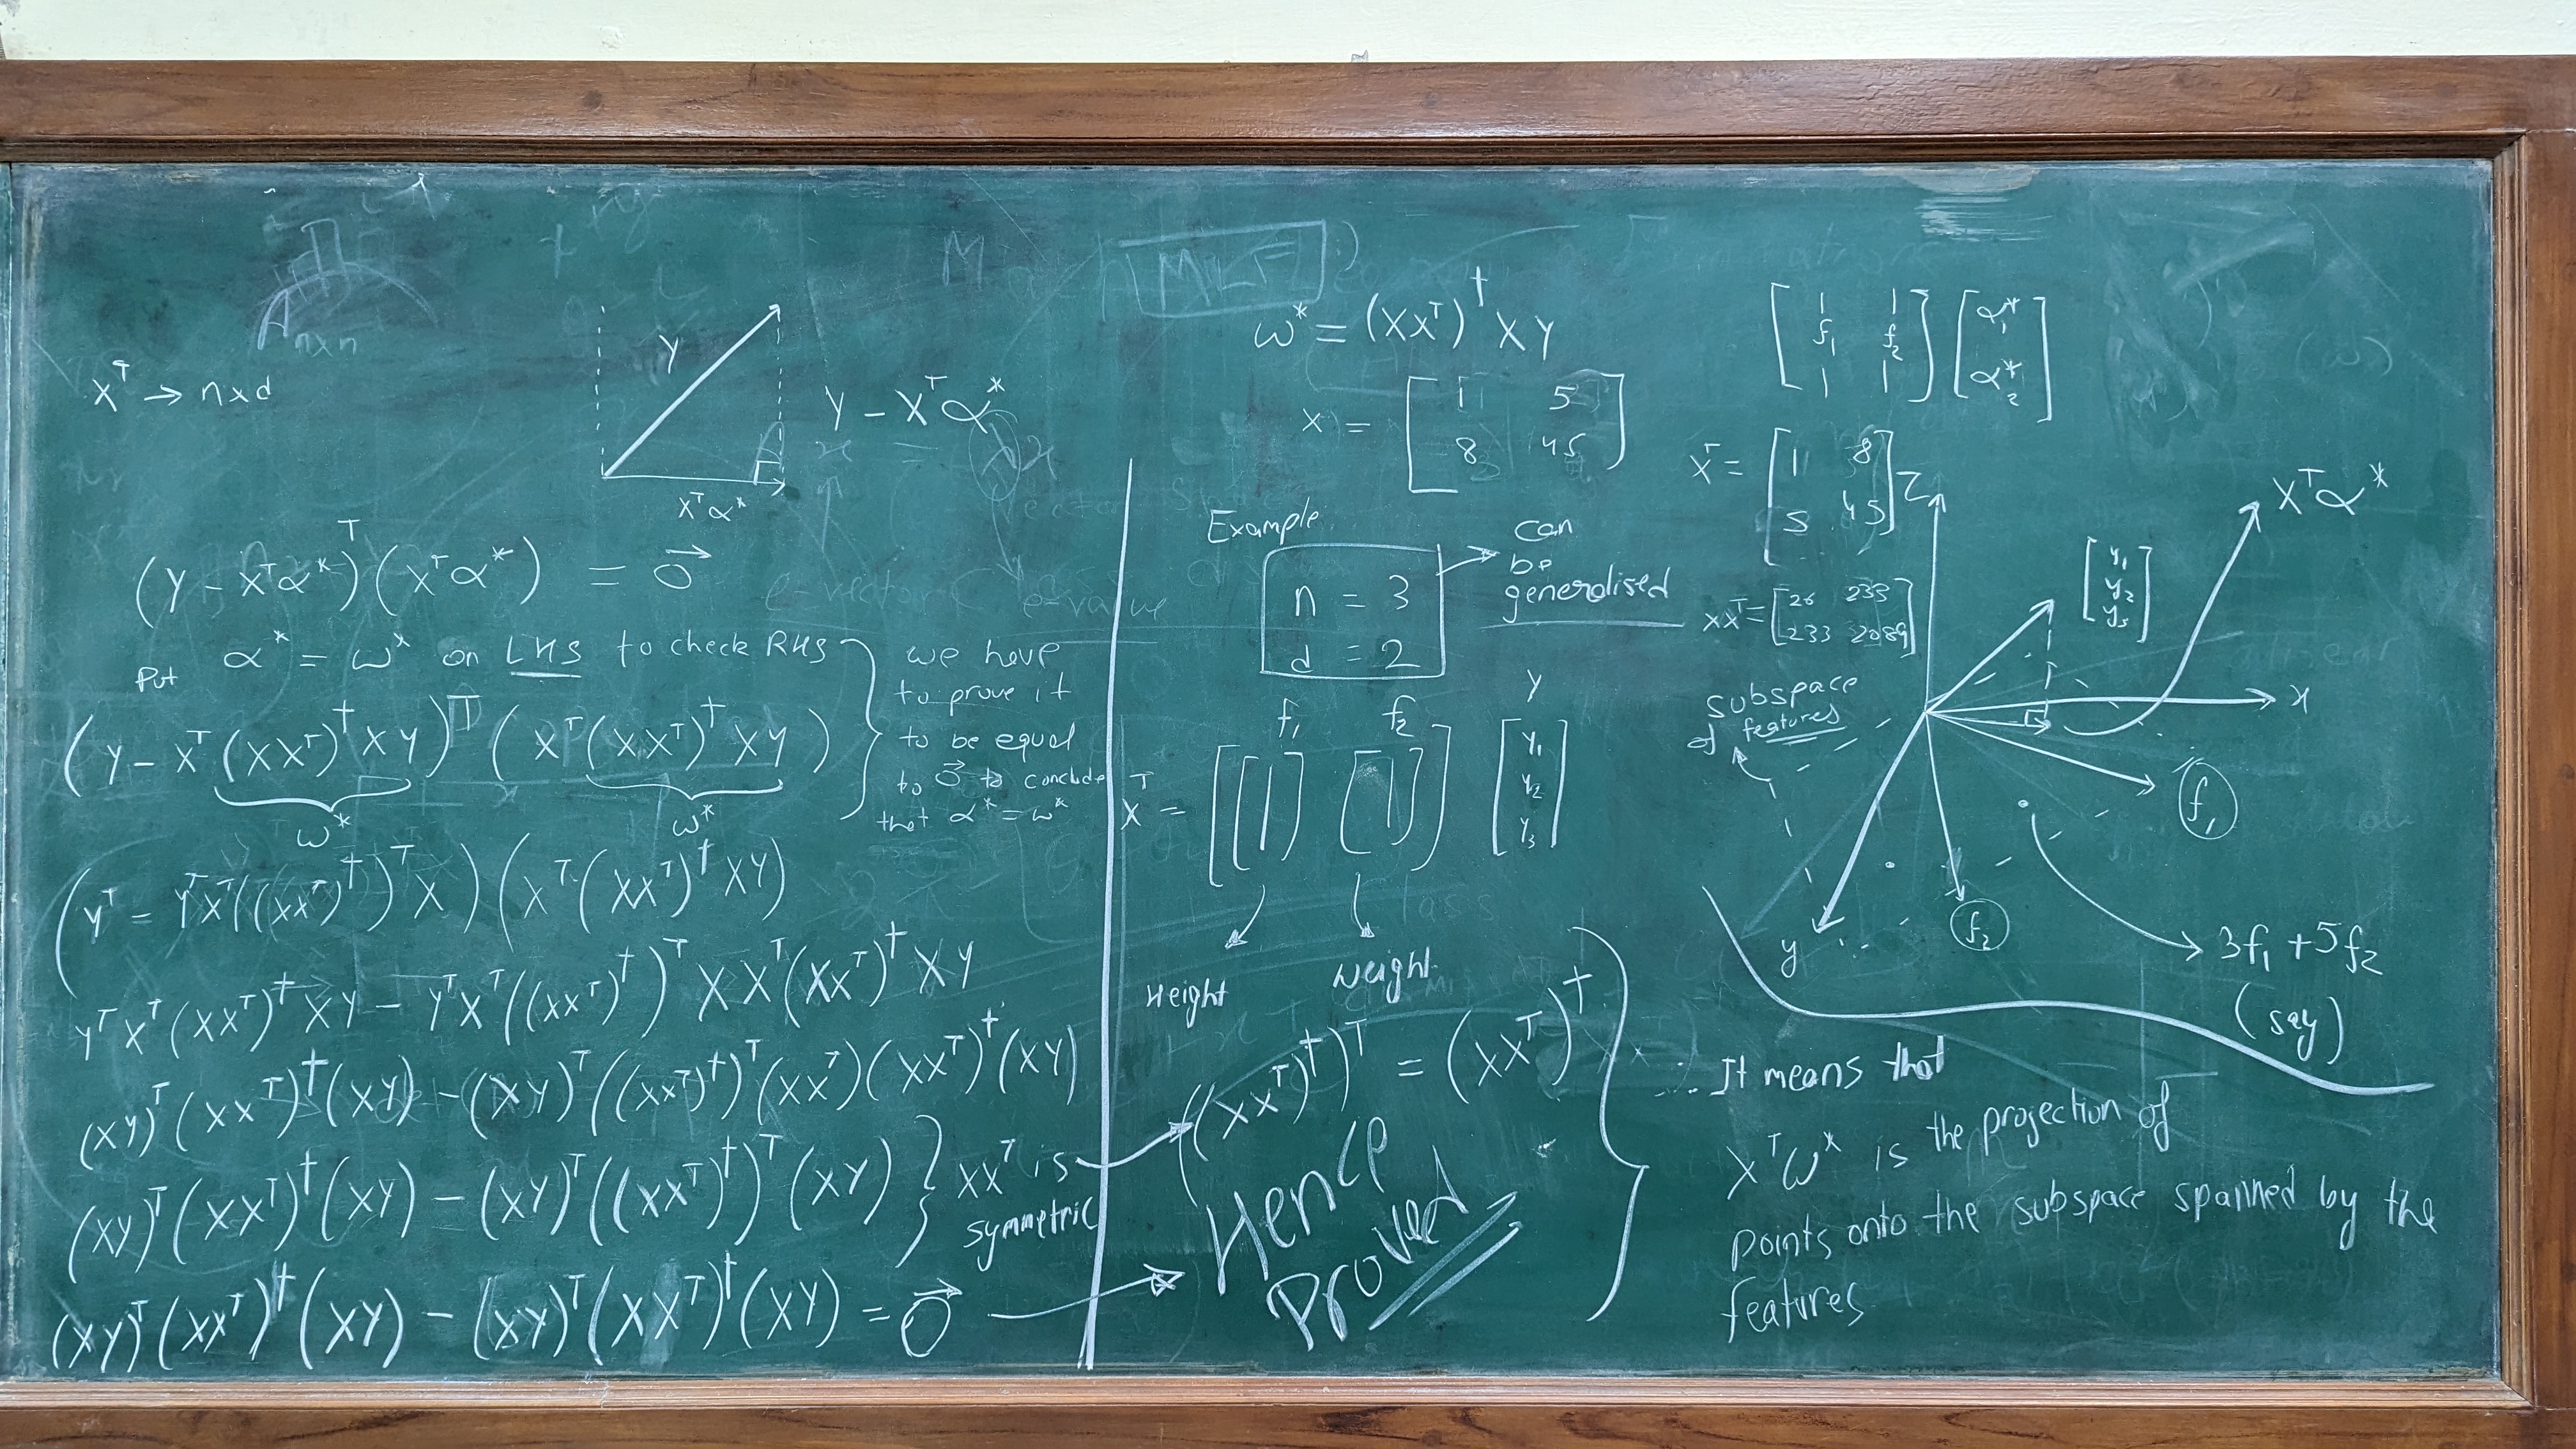 X^T → n x d
y
Y - X^T α*
X^T α*
(Y - X^T α*)^T (X^T α*) = 0⃗
Put α* = ω* on LHS to check RHS
we have
to prove it
to be equal
to 0⃗ to conclude
that α* = ω*
(Y - X^T (XX^T)^† XY)^T (X^T (XX^T)^† XY)
ω* ω*
(Y^T - Y^T X^T ((XX^T)^†)^T X) (X^T (XX^T)^† XY)
Y^T X^T (XX^T)^† XY - Y^T X^T ((XX^T)^†)^T X X^T (XX^T)^† XY
(XY)^T (XX^T)^† (XY) - (XY)^T ((XX^T)^†)^T (XX^T) (XX^T)^† (XY)
(XY)^T (XX^T)^† (XY) - (XY)^T ((XX^T)^†)^T (XY)
XX^T is
symmetric
(XY)^T (XX^T)^† (XY) - (XY)^T (XX^T)^† (XY) = 0⃗
MLF
ω* = (XX^T)^† XY
X = [1 5
8 45]
Example
n = 3
d = 2
can
be
generalised
f1 f2 Y
X^T = [[|] [|]] [y1
y2
y3]
Height Weight
((XX^T)^†)^T = (XX^T)^†
Hence
Proved
[| |
f1 f2
| |] [α1*
α2*]
X^T = [1 8
5 45]
XX^T = [26 233
233 2089]
subspace
of features
z
X^T α*
[y1
y2
y3]
x
f1
f2
y
3f1 + 5f2
(say)
It means that
X^T ω* is the projection of
points onto the subspace spanned by the
features
A n x n